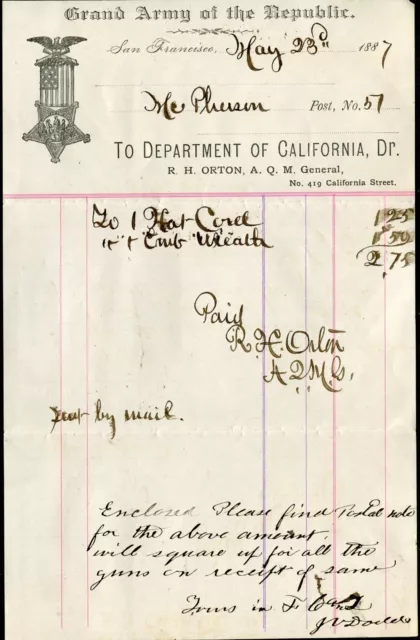 Grand Army of the Republic.
San Francisco, May 23d 1887
McPherson Post, No. 51
TO DEPARTMENT OF CALIFORNIA, Dr.
R. H. ORTON, A. Q. M. General,
No. 419 California Street.
To 1 Hat Cord 1 25
" 1 Emb Wreath 1 50
2 75
Paid
R. H. Orton
A Q M G,
sent by mail.
Enclosed Please find Postal note
for the above amount.
will square up for all the
guns on receipt of same
Yours in F C and L